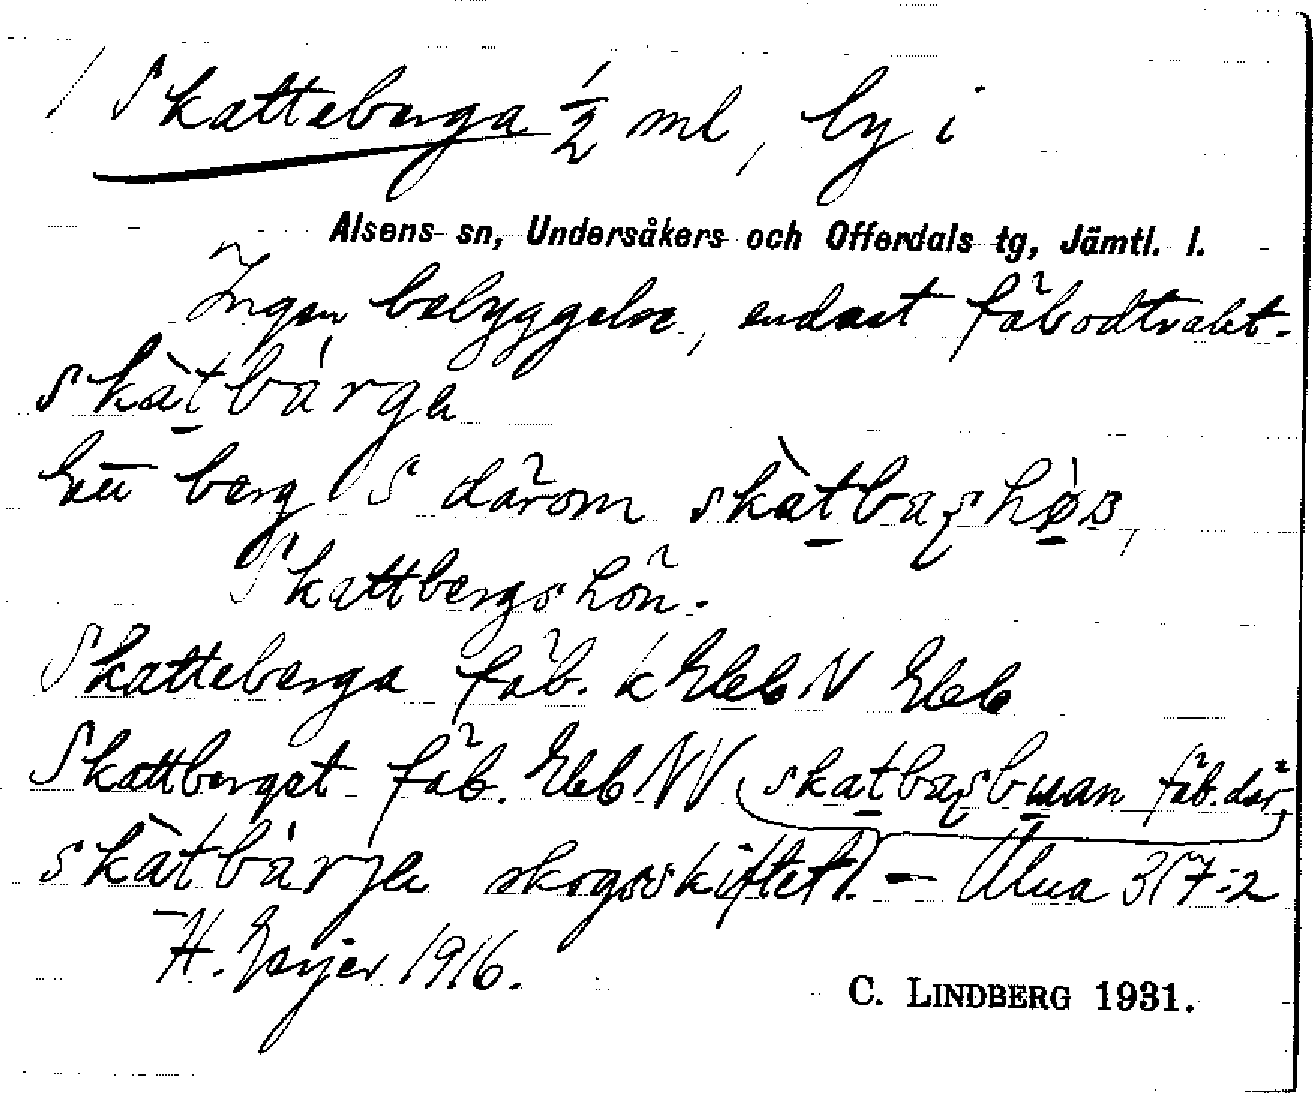 1 Skatteberga ½ ml, by i
Alsens sn, Undersåkers och Offerdals tg, Jämtl. l.
Ingen bebyggelse, endast fäbodtrakt.
skàtbárga
Ett berg S därom skàtbaʂhø̀n,
Skattbergshön.
Skatteberga fäb. k Ekeb N Ekeb
Skattberget fäb. Ekeb NV (skatbaʂbuan fäb. där)
skàtbárjε skogsskiftet). - Utua 317:2
H. Geijer 1916.
C. LINDBERG 1931.